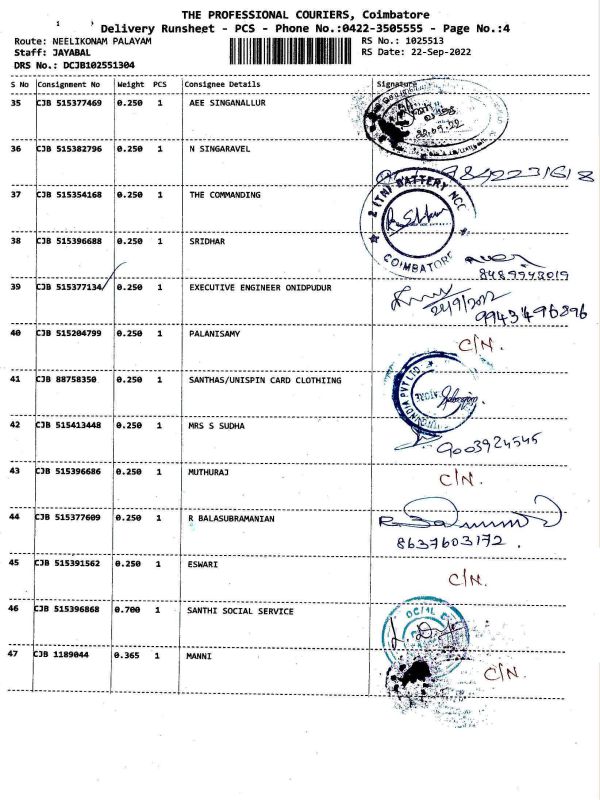 THE PROFESSIONAL COURIERS, Coimbatore
Delivery Runsheet - PCS - Phone No.:0422-3505555 - Page No.:4
Route: NEELIKONAM PALAYAM RS No.: 1025513
Staff: JAYABAL RS Date: 22-Sep-2022
DRS No.: DCJB102551304
S No Consignment No Weight PCS Consignee Details Signature
35 CJB 515377469 0.250 1 AEE SINGANALLUR
36 CJB 515382796 0.250 1 N SINGARAVEL 9842231618
37 CJB 515354168 0.250 1 THE COMMANDING 2 (TN) BATTERY NCC COIMBATORE
38 CJB 515396688 0.250 1 SRIDHAR 8489943019
39 CJB 515377134 0.250 1 EXECUTIVE ENGINEER ONIDPUDUR 22/9/2022 9943496896
40 CJB 515204799 0.250 1 PALANISAMY C/N.
41 CJB 88758350 0.250 1 SANTHAS/UNISPIN CARD CLOTHIING INDIA PVT LTD
42 CJB 515413448 0.250 1 MRS S SUDHA 9003924545
43 CJB 515396686 0.250 1 MUTHURAJ C/N.
44 CJB 515377609 0.250 1 R BALASUBRAMANIAN 8637603172.
45 CJB 515391562 0.250 1 ESWARI C/N.
46 CJB 515396868 0.700 1 SANTHI SOCIAL SERVICE
47 CJB 1189044 0.365 1 MANNI C/N.